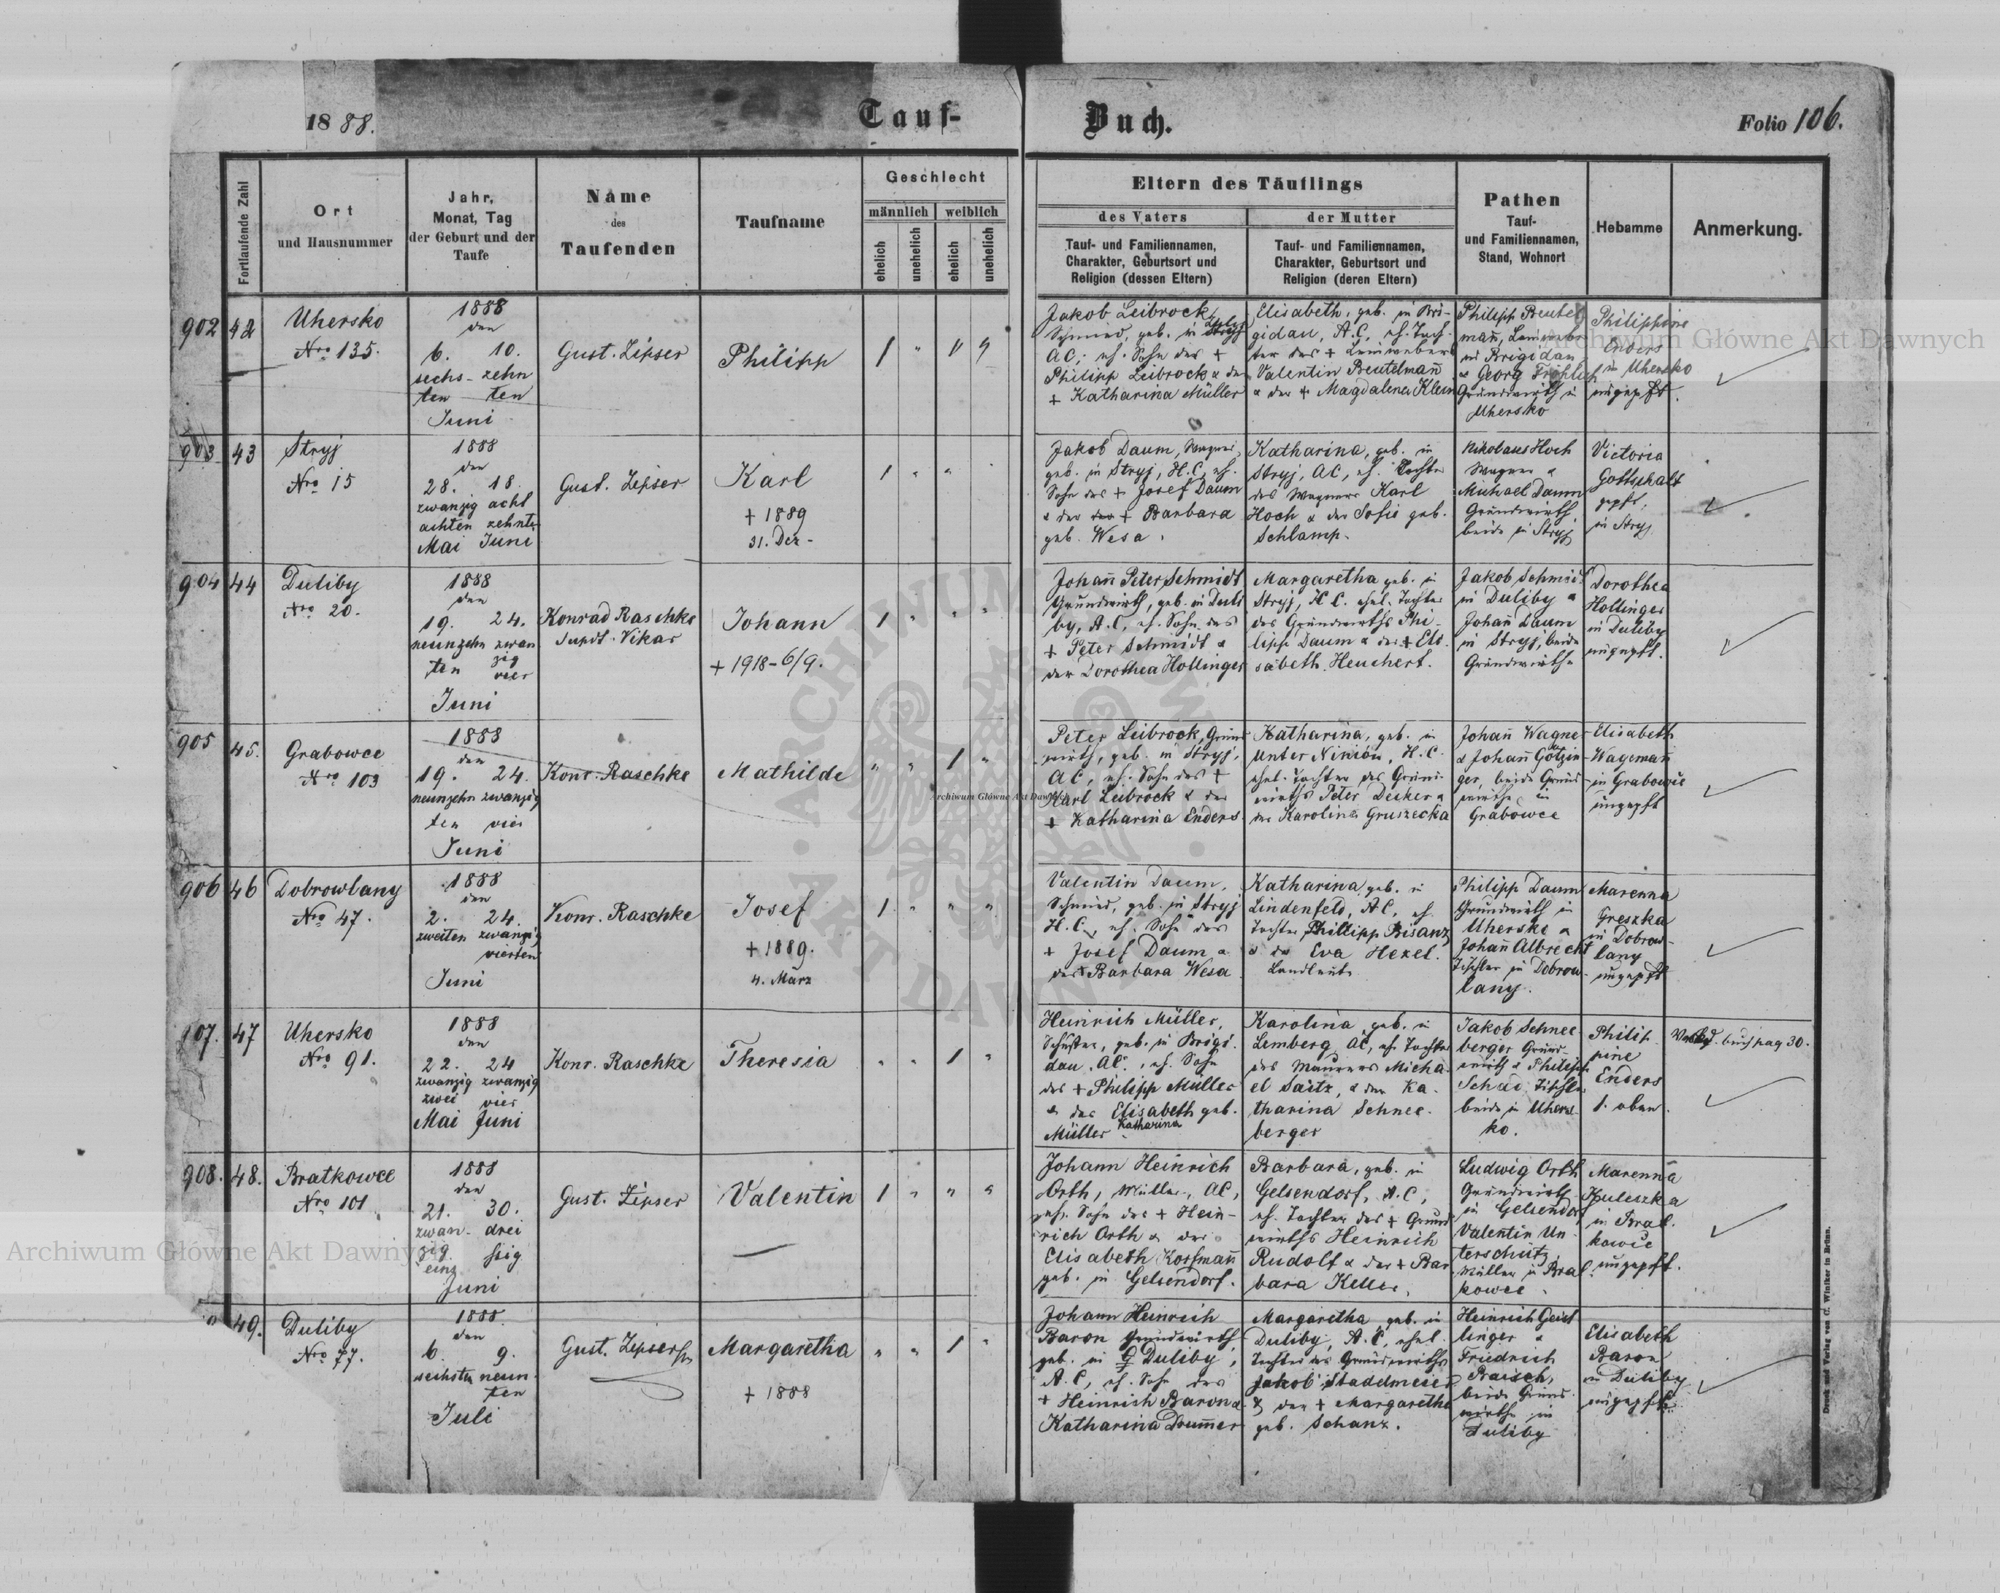 1888.
Tauf-
Buch.
Folio 106.
Fortlaufende Zahl
Ort
und Hausnummer
Jahr,
Monat, Tag
der Geburt und der
Taufe
Name
des
Taufenden
Taufname
Geschlecht
männlich
weiblich
ehelich
unehelich
ehelich
unehelich
Eltern des Täuflings
des Vaters
Tauf- und Familiennamen,
Charakter, Geburtsort und
Religion (dessen Eltern)
der Mutter
Tauf- und Familiennamen,
Charakter, Geburtsort und
Religion (deren Eltern)
Pathen
Tauf-
und Familiennamen,
Stand, Wohnort
Hebamme
Anmerkung.
902
42
Uhersko
Nro 135.
1888
den
6. 10.
sechs- zehn
ten ten
Juni
Gust. Zipser
Philipp
1 " " "
Jakob Leibrock,
Schmied, geb. in Stryj
AC, eh. Sohn des +
Philipp Leibrock & der
+ Katharina Müller
Elisabeth, geb. in Bri-
gidau, A.C, eh. Toch-
ter des + Leinwebers
Valentin Beutelmañ
& der + Magdalena Klein
Philipp Beutel
mañ, Leinweber
in Brigidau
& Georg Fröhlich
Grundwirth in
Uhersko
Philippine
Enders
in Uhersko
ungepft.
903
43
Stryj
Nro 15
1888
den
28. 18.
zwanzig acht
achten zehnten
Mai Juni
Gust. Zipser
Karl
+ 1889
31. Dez.
1 " "
Jakob Daum, Wagner,
geb. in Stryj, H.C, eh.
Sohn des + Josef Daum
& der + Barbara
geb. Wesa.
Katharina, geb. in
Stryj, AC, eh. Tochter
des Wagners Karl
Hoch & der Sofie geb.
Schlamp.
Nikolaus Hoch
Wagner &
Michael Daum
Grundwirth
beide in Stryj
Victoria
Gottschalk
gepft,
in Stryj
904
44
Duliby
Nro 20.
1888
den
19. 24.
neunzehn zwan
ten zig
vier
Juni
Konrad Raschke
Supdt. Vikar
Johann
+ 1918-6/9.
1 " " "
Johañ Peter Schmidt
Grundwirth, geb. in Duli
by, A.C, eh. Sohn des
+ Peter Schmidt &
der Dorothea Hollinger
Margaretha geb. in
Stryj, H.C. ehel. Tochter
des Grundwirths Phi-
lipp Daum & der + Eli
sabeth Heuchert.
Jakob Schmidt
in Duliby &
Johañ Daum
in Stryj, beide
Grundwirthe
Dorothea
Hollinger
in Duliby
ungepft.
905
45.
Grabowce
Nro 103
1888
den
19. 24.
neunzehn zwanzig
ten vier
Juni
Konr. Raschke
Mathilde
" " 1 "
Peter Leibrock, Grund
wirth, geb. in Stryj,
AC, eh. Sohn des +
Karl Leibrock & der
+ Katharina Enders
Katharina, geb. in
Unter Niniow, H.C.
ehel. Tochter des Grund-
wirths Peter Decker &
der Karolina Gruszecka
Johañ Wagne
& Johañ Götzin
ger, beide Grund
wirthe in
Grabowce
Elisabeth
Wagemañ
in Grabowce
ungepft
906
46
Dobrowlany
Nro 47.
1888
den
2. 24.
zweiten zwanzig
vierten
Juni
Konr. Raschke
Josef
+ 1889.
4. März
1 " " "
Valentin Daum,
Schmied, geb. in Stryj
H.C., eh. Sohn des
+ Josef Daum &
der + Barbara Wesa
Katharina, geb. in
Lindenfeld, AC, eh.
Tochter Phillipp Bisanz
& der Eva Hexel.
Landleute
Philipp Daum
Grundwirth in
Uherske &
Johañ Albrecht
Tischler in Dobrow-
lany.
Marenna
Greszka
in Dobrow-
lany
ungepft
107.
47
Uhersko
Nro 91.
1888
den
22. 24
zwanzig zwanzig
zwei vier
Mai Juni
Konr. Raschke
Theresia
" " 1 "
Heinrich Müller,
Schuster, geb. in Brigi-
dau, AC., eh. Sohn
des + Philipp Müller
& der Elisabeth geb.
Müller Katharina
Karolina, geb. in
Lemberg, AC, eh. Tochter
des Maurers Micha-
el Saitz, & der Ka-
tharina Schnee-
berger
Jakob Schnee
berger Grund-
wirth & Philipp
Tischler
beide in Uhers-
ko.
Philip-
pine
Enders
s. oben.
pag 30.
908.
48.
Bratkowce
Nro 101
1888
den
21. 30.
zwan- drei
zig ssig
einz
Juni
Gust. Zipser
Valentin
1 " " "
Johann Heinrich
Orth, Müller, AC,
eh. Sohn des + Hein-
rich Orth & der
Elisabeth Korfmañ
geb. in Gelsendorf.
Barbara, geb. in
Gelsendorf, A.C,
eh. Tochter des + Grund
wirths Heinrich
Rudolf & der + Bar
bara Keller.
Ludwig Orth
Grundwirth
in Gelsendorf
Valentin Un-
terschütz,
Müller in Brat-
kowce.
Marenna
Kuleszka
in Brat-
kowce
ungepft.
49.
Duliby
Nro 77.
1888.
den
6. 9.
sechsten neun-
ten
Juli
Gust. Zipser
Margaretha
+ 1888
" " 1 "
Johann Heinrich
Baron Grundwirth,
geb. in Duliby,
A.C, eh. Sohn des
+ Heinrich Baron &
Katharina Drummer
Margaretha geb. in
Duliby, A.C, ehel.
Tochter des Grundwirths
Jakob Staddmeier
& der + Margaretha
geb. Schanz.
Heinrich Geist
linger &
Friedrich
Raisch,
beide Grund-
wirthe in
Duliby
Elisabeth
Baron
in Duliby
ungepft.
Druck und Verlag von C. Winiker in Brünn.
Archiwum Główne Akt Dawnych
Archiwum Główne Akt Dawnych
Archiwum Główne Akt Dawnych
ARCHIWUM GŁÓWNE AKT DAWNYCH